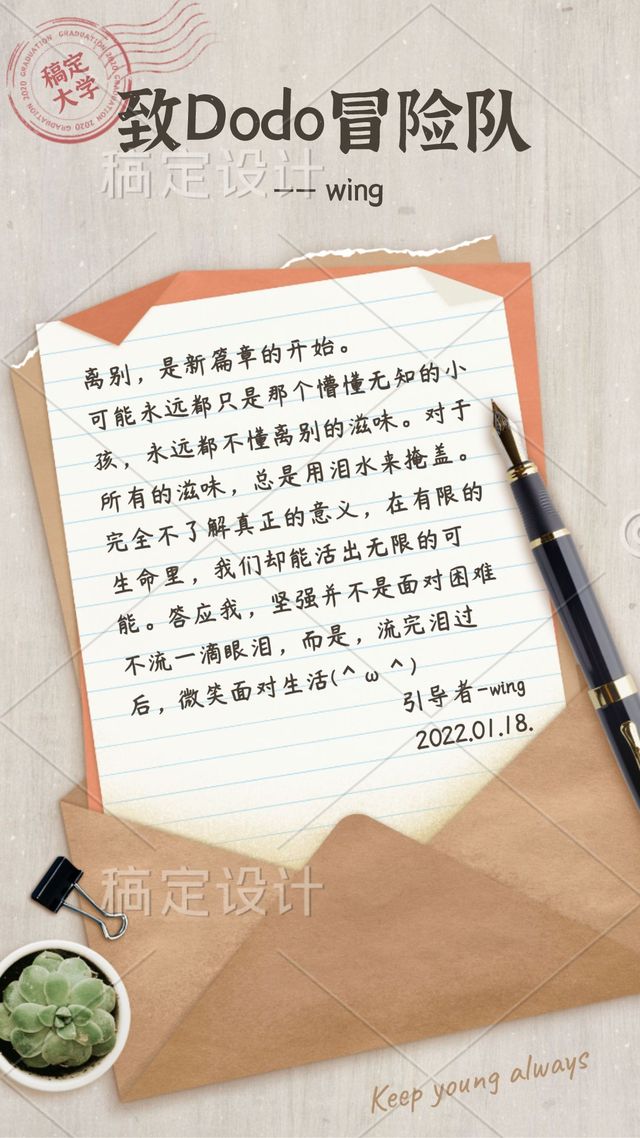 稿定
大学
GRADUATION 2020 GRADUATION 2020
致Dodo冒险队
稿定设计
—— wing
离别，是新篇章的开始。
可能永远都只是那个懵懂无知的小
孩，永远都不懂离别的滋味。对于
所有的滋味，总是用泪水来掩盖。
完全不了解真正的意义，在有限的
生命里，我们却能活出无限的可
能。答应我，坚强并不是面对困难
不流一滴眼泪，而是，流完泪过
后，微笑面对生活(＾ω＾)
引导者-wing
2022.01.18.
稿定设计
Keep young always